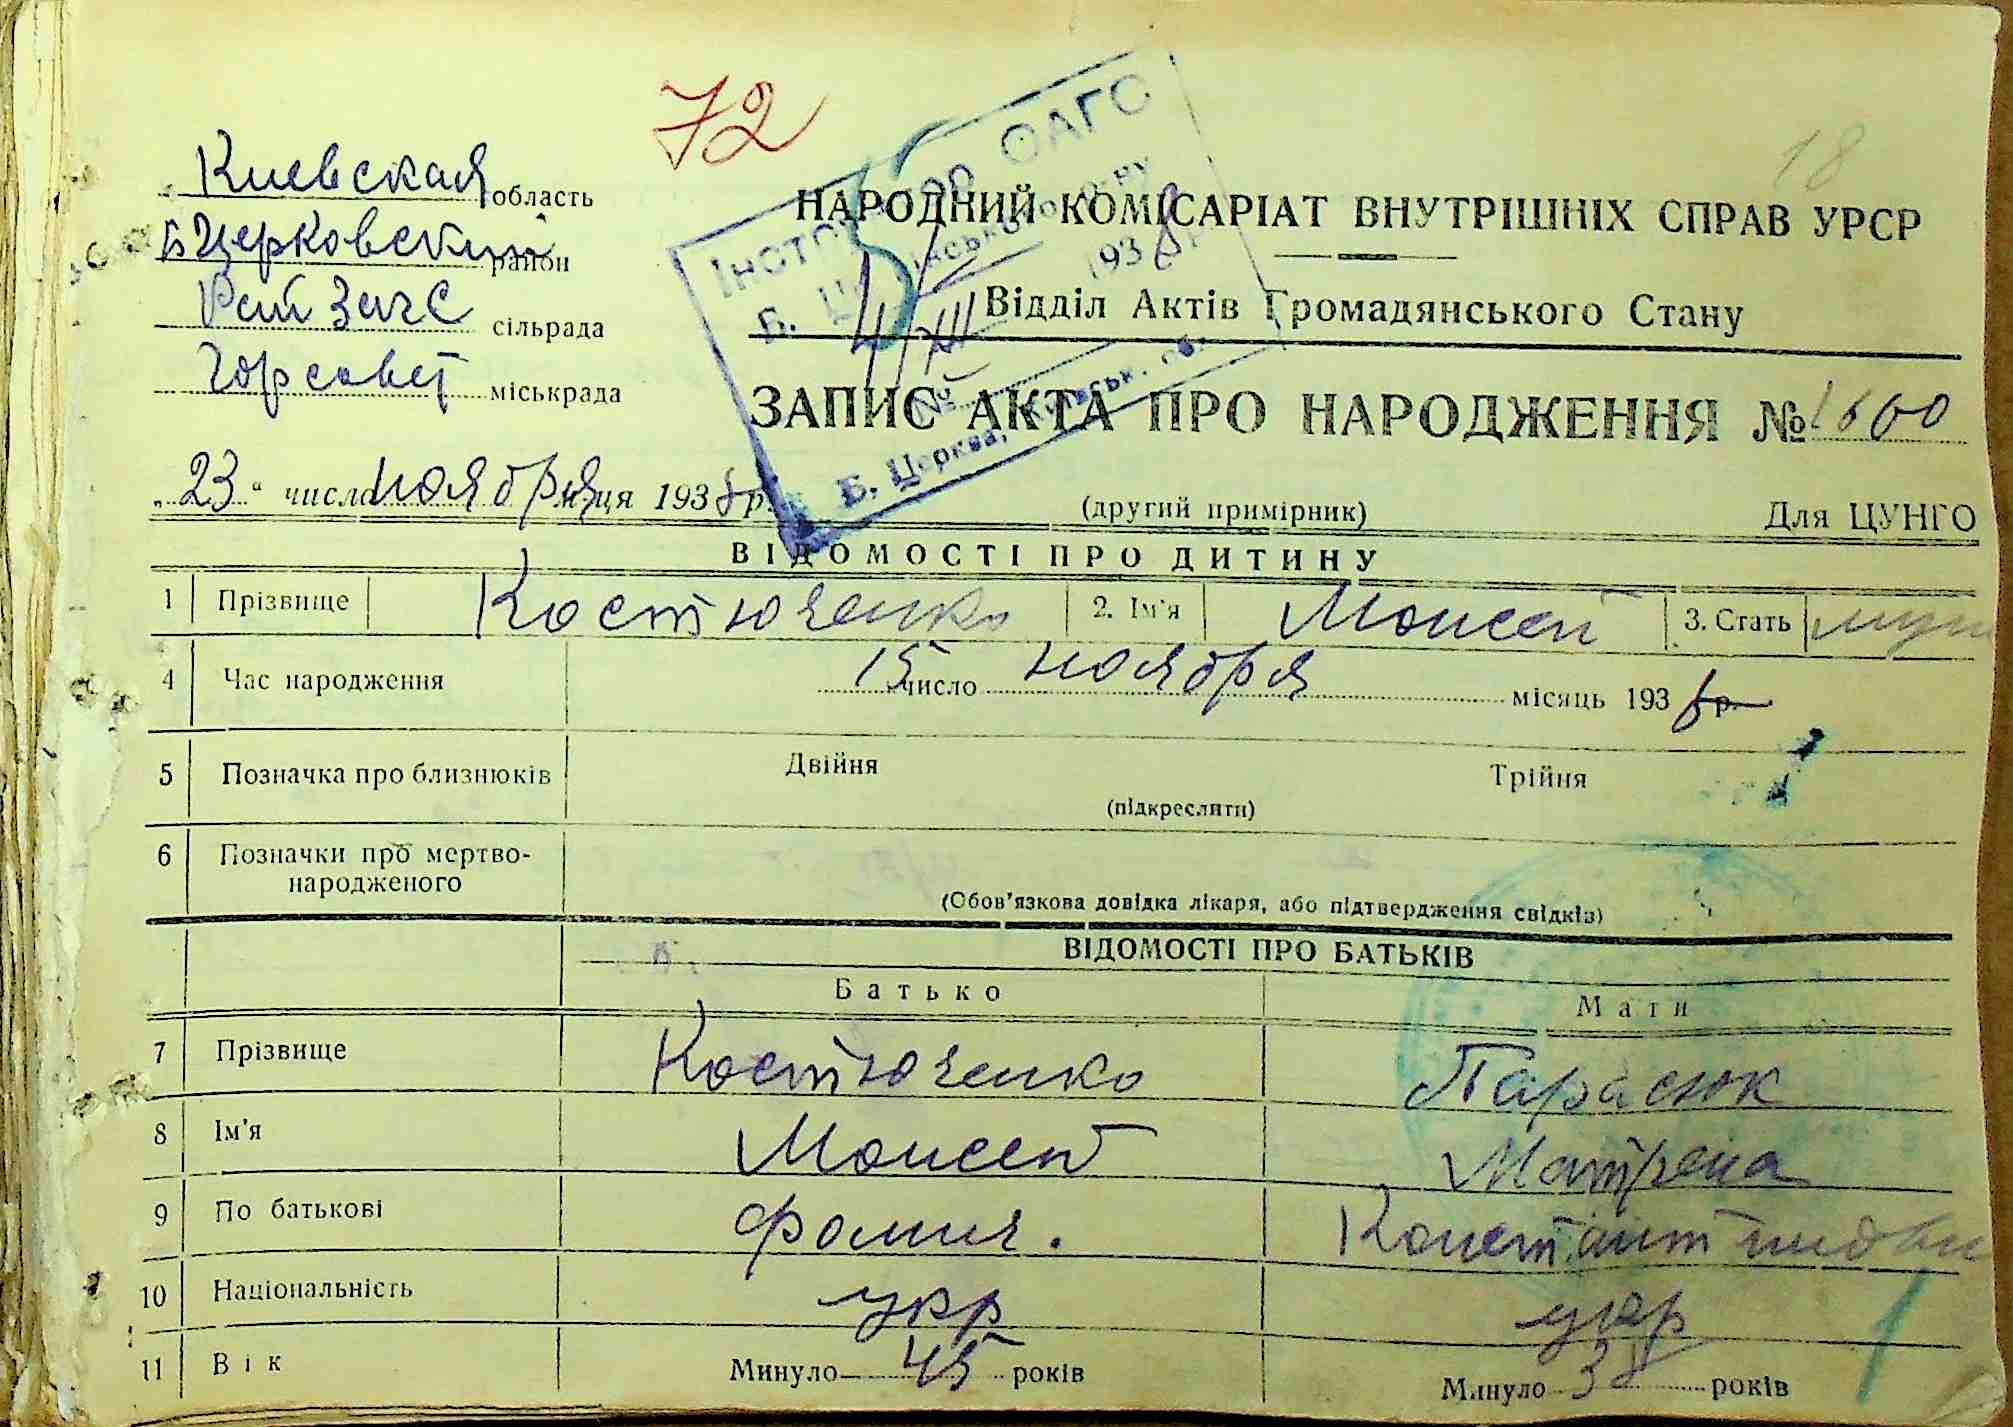 72
18
Киевская область
Б Церковский район
Рай Загс сільрада
Горсовет міськрада
Інспектор ОАГС
Б. Ц
193 р.
4/XII
№
Б. Церква, Київськ. об.
НАРОДНИЙ КОМІСАРІАТ ВНУТРІШНІХ СПРАВ УРСР
Відділ Актів Громадянського Стану
ЗАПИС АКТА ПРО НАРОДЖЕННЯ № 1660
„23“ числа ноября м-ця 1938 р.
(другий примірник)
Для ЦУНГО
ВІДОМОСТІ ПРО ДИТИНУ
1 Прізвище Костюченко 2. Ім'я Моисей 3. Стать муж
4 Час народження 15 число ноября місяць 193 р.
5 Позначка про близнюків Двійня Трійня
(підкреслити)
6 Позначки про мертво-
народженого
(Обов'язкова довідка лікаря, або підтвердження свідків)
ВІДОМОСТІ ПРО БАТЬКІВ
Батько Мати
7 Прізвище Костюченко Парасюк
8 Ім'я Моисей Матрена
9 По батькові Фомич. Константиновн
10 Національність укр укр
11 Вік Минуло 45 років Минуло 3 років